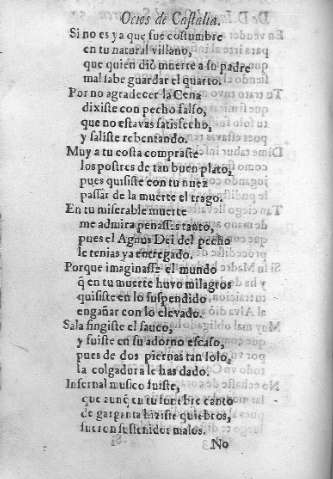 Ocios de Castalia.
Si no es ya que fue costumbre
en tu natural villano,
que quien diò muerte a su padre
mal sabe guardar el quarto.
Por no agradecer la Cena
dixiste con pecho falso,
que no estavas satisfecho,
y saliste rebentando.
Muy a tu costa compraste
los postres de tan buen plato,
pues quisiste con tu nuez
passar de la muerte el trago.
En tu miserable muerte
me admira penasses tanto,
pues el Agnus Dei del pecho
le tenias ya entregado.
Porque imaginasse el mundo
q̃ en tu muerte huvo milagros
quisiste en lo suspendido
engañar con lo elevado.
Sala fingiste el sauco,
y fuiste en su adorno escaso,
pues de dos piernas tan solo,
la colgadura le has dado.
Infernal musico fuiste,
que aunq̃ en tu funebre canto
de garganta hiziste quiebros,
fueron sustenidos malos.
No